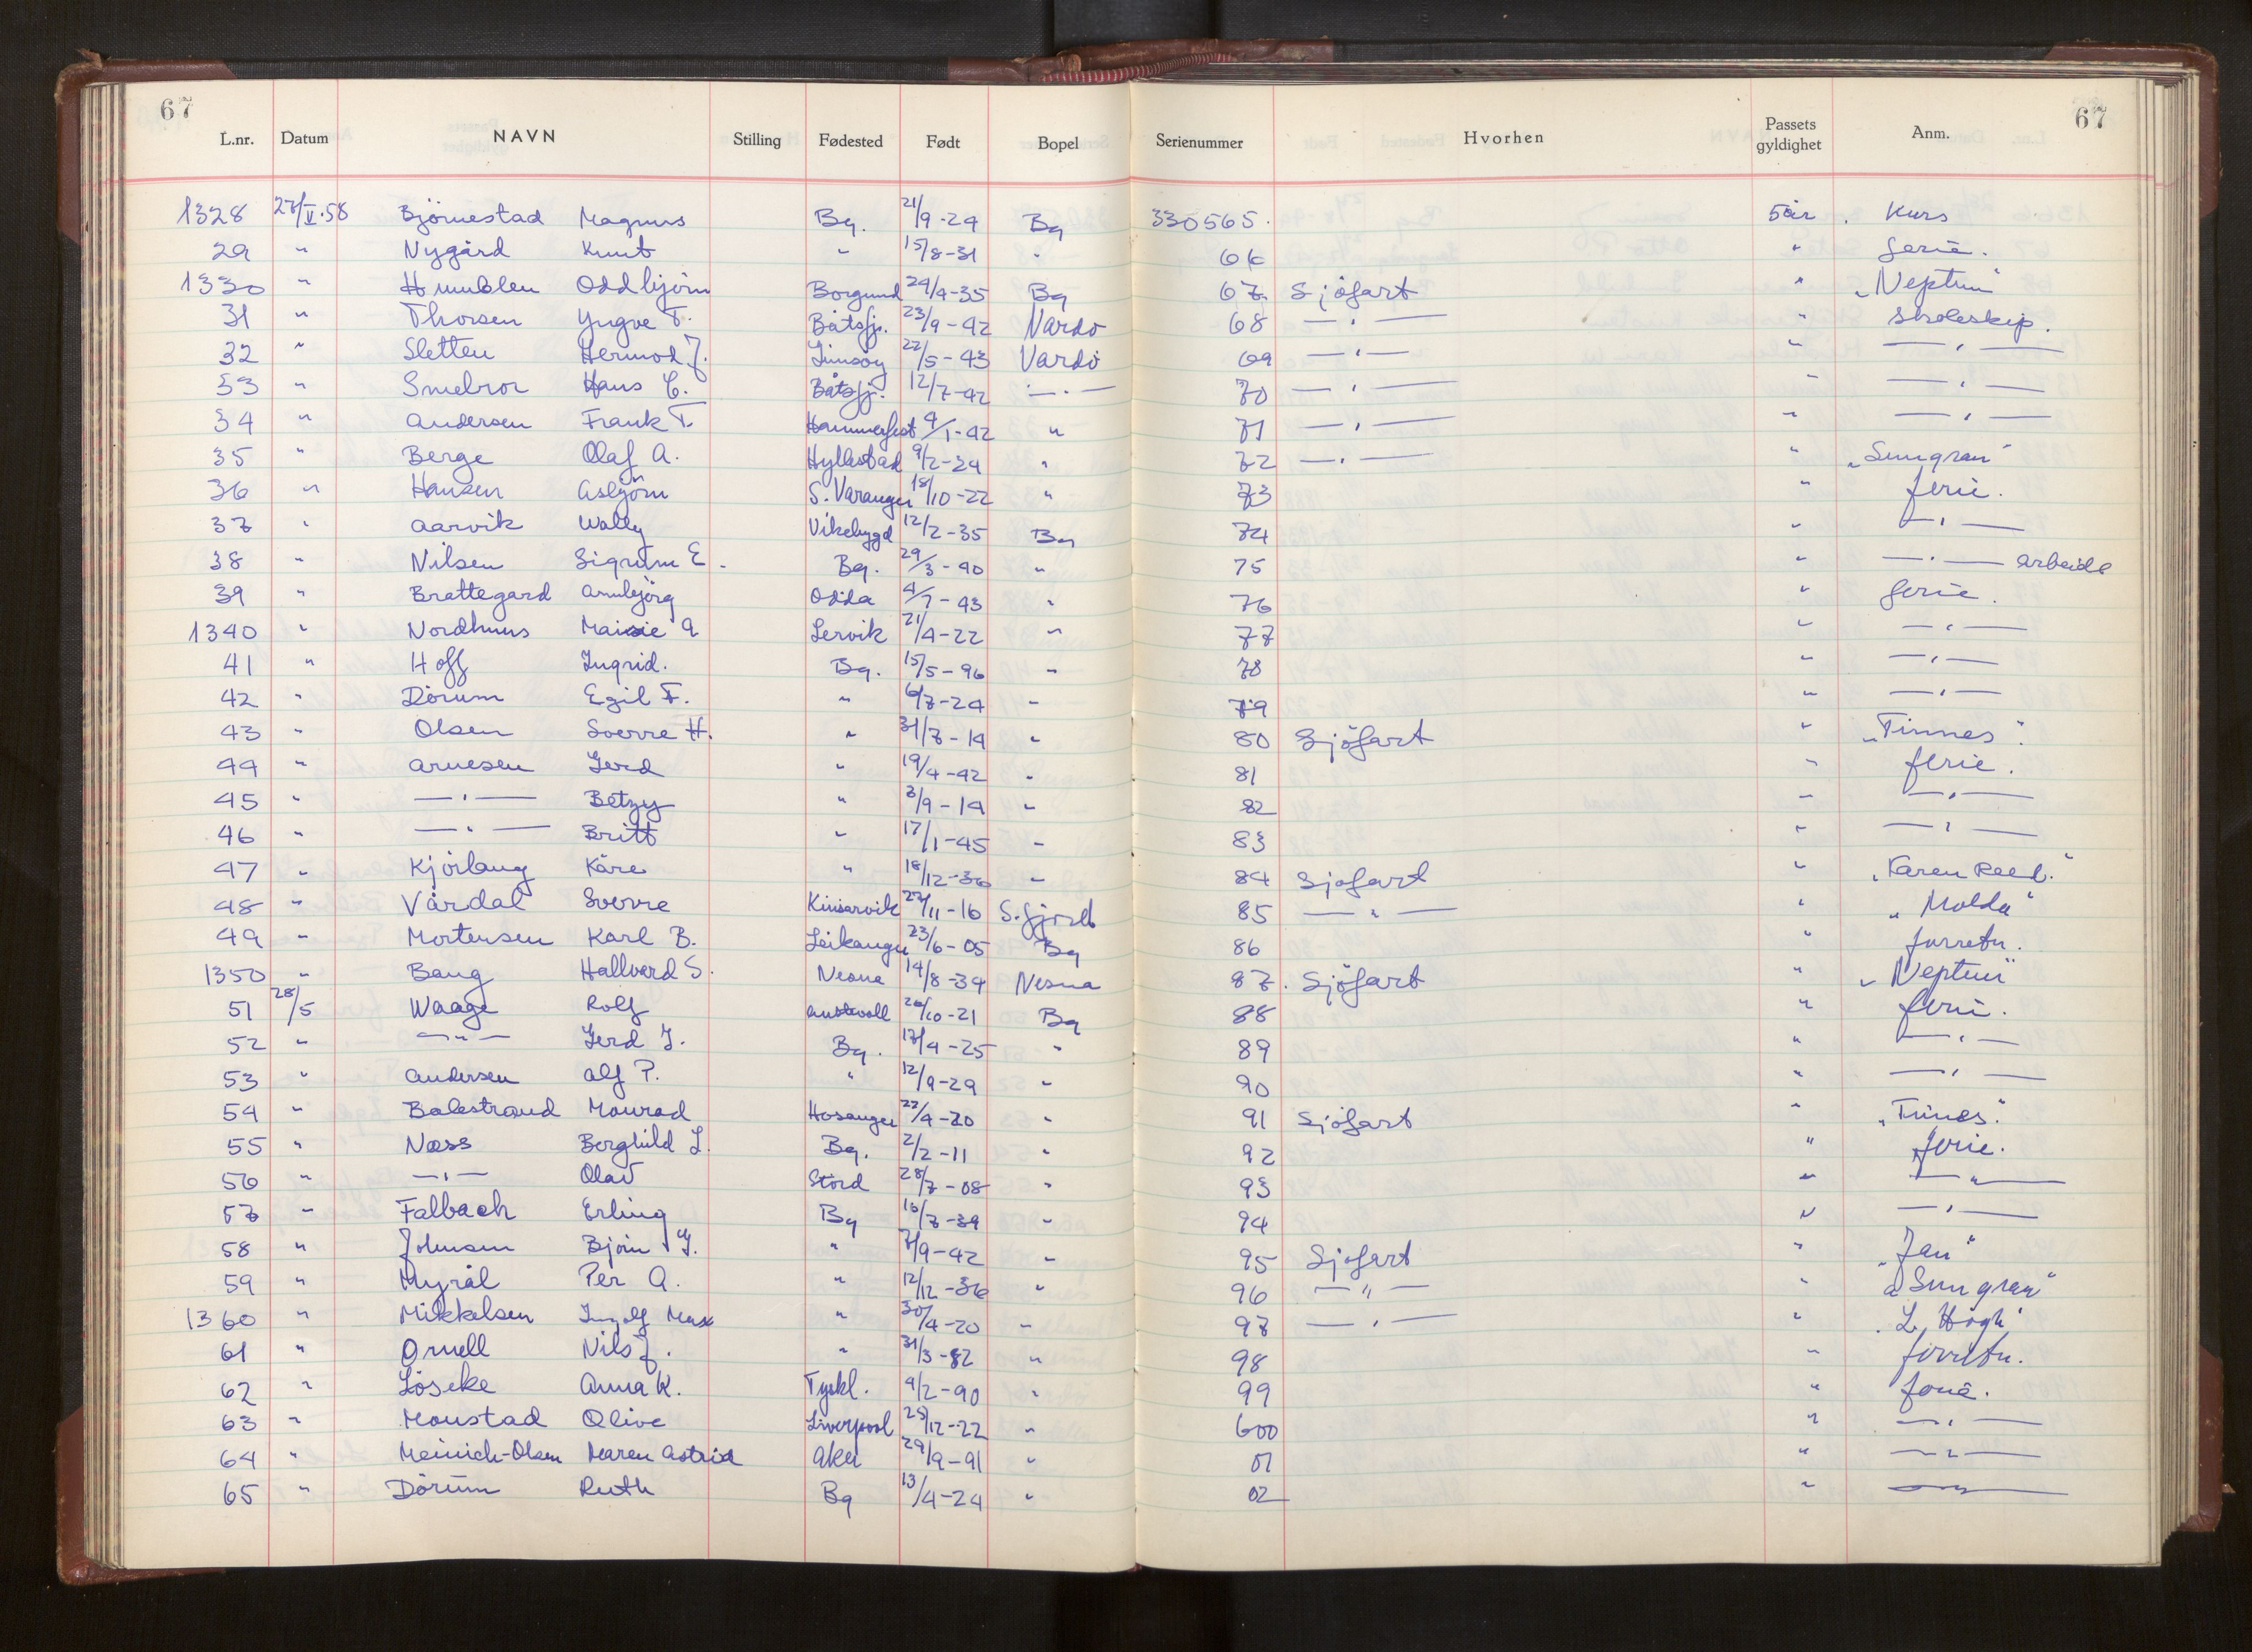 67 67
L.nr. Datum NAVN Stilling Fødested Født Bopel Serienummer Hvorhen Passets gyldighet Anm.
1328 27/V.58 Björnestad Magnus Bg. 21/9-29 Bg 330565. 5 år. Kurs
29 " Nygård Knut " 15/8-31 " 66 " ferie.
1330 " Humblen Oddbjörn Borgund 24/4-35 Bg 67 Sjöfart " "Neptun"
31 " Thorsen Yngve F. Båtsfj. 23/9-42 Vardö 68 —"— " skoleskip.
32 " Sletten Hermod J. 22/5-43 Vardö 69 —"— " —"—
33 " Smelror Hans C. Båtsfj. 12/7-42 —"— 70 —"— " —"—
34 " Andersen Frank T. Hammerfest 4/1-42 " 71 —"— " —"—
35 " Berge Olaf A. Hyllestad 9/2-24 " 72 —"— " "Sungran"
36 " Hansen Asbjörn S. Varanger 18/10-22 " 73 " ferie.
37 " Aarvik Wally Vikebygd 12/2-35 Bg 74 " —"—
38 " Nilsen Sigrun E. Bg. 29/3-40 " 75 " —"— arbeide
39 " Brattegard Annbjörg Odda 4/7-43 " 76 " ferie.
1340 " Nordhuus Maisie A Lervik 21/4-22 " 77 " —"—
41 " Hoff Ingrid. Bg. 15/5-96 " 78 " —"—
42 " Dörum Egil F. " 6/7-24 " 79 " —"—
43 " Olsen Sverre H. " 31/7-14 " 80 Sjöfart " "Finnes".
44 " Arnesen Gerd " 19/4-42 " 81 " ferie.
45 " —"— Betzy " 3/9-14 " 82 " —"—
46 " —"— Britt " 17/1-45 " 83 " —"—
47 " Kjörlaug Kåre " 18/12-36 " 84 Sjöfart " "Karen Reed."
48 " Vårdal Sverre Kinsarvik 27/11-16 S.fjord 85 —"— " "Molda"
49 " Mortensen Karl B. Leikanger 23/6-05 Bg 86 " forretn.
1350 " Baug Hallvard S. Nesna 14/8-34 Nesna 87. Sjöfart " "Neptun"
51 28/5 Waage Rolf Austevoll 26/10-21 Bg 88 " ferie.
52 " —"— Gerd J. Bg. 17/4-25 " 89 " —"—
53 " Andersen Alf P. " 12/9-29 " 90 " —"—
54 " Balestrand Monrad Hosanger 22/4-20 " 91 Sjöfart " "Finnes".
55 " Næss Berghild L. Bg. 2/2-11 " 92 " ferie.
56 " —"— Olav Stord 28/7-08 " 93 " —"—
57 " Falbach Erling Bg 16/7-39 " 94 " —"—
58 " Johnsen Björn J. " 7/9-42 " 95 Sjöfart " "Jan"
59 " Myrål Per A. " 12/12-36 " 96 —"— " "Sungran"
1360 " Mikkelsen Ingolf Max " 30/4-20 " 97 —"— " "L. Högh"
61 " Ornell Nils J. " 31/3-82 " 98 " forretn.
62 " Löseke Anna K. Tyskl. 9/2-90 " 99 " ferie.
63 " Monstad Olive Liverpool 25/12-22 " 600 " —"—
64 " Meinich-Olsen Maren Astrid Aker 29/9-91 " 01 " —"—
65 " Dörum Ruth Bg 13/4-24 " 02 " —"—